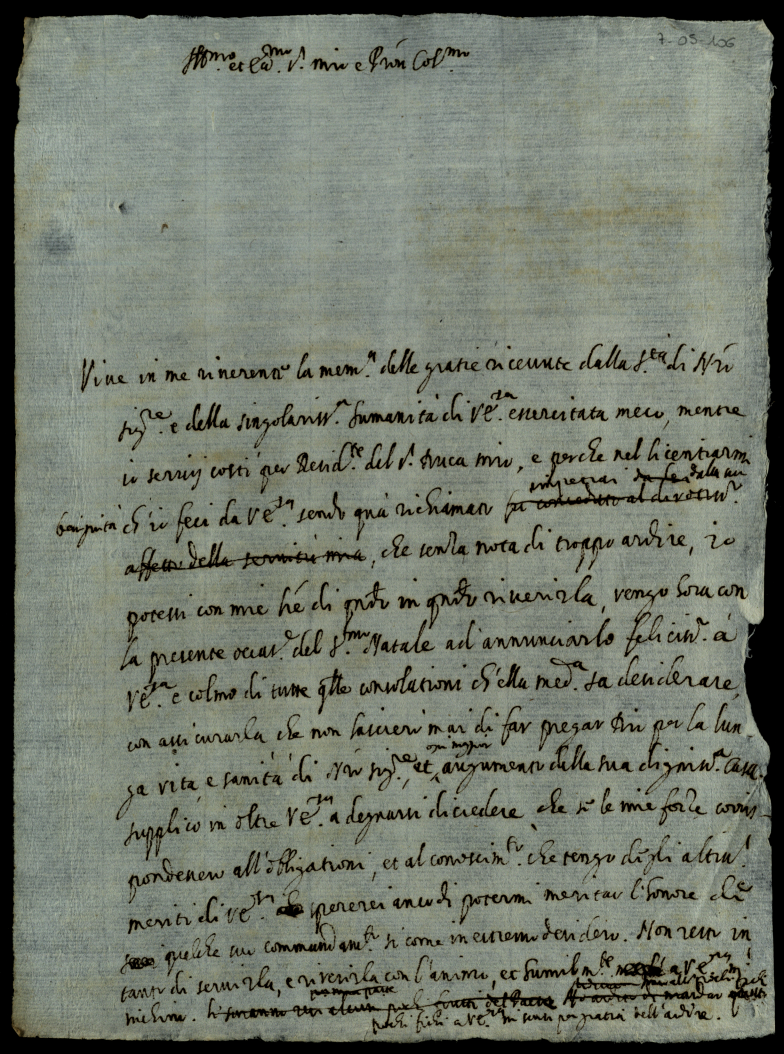 7-05-106
Ill.mo et Ecc.mo S.r mio e Pron Col.mo
Vive in me riverente la mem.a delle gratie ricevute dalla S.tà di Nro
Sig.re e della singolariss.a humanità di VE.za essercitata meco, mentre
io servij costì per Resid.te del S.r Duca mio, e perche nel licentiarmi
impetrai da lei dalla sua
benignità ch'io feci da VE.za sendo quà richiamato fù conceduto al divotiss.o
affetto della servitù mia, che senza nota di troppo ardire, io
potessi con mie l're di qndo in qndo riverirla, vengo hora con
la presente occas.e del S.mo Natale ad annunciarlo feliciss.o à
VE.za e colmo di tutte q'lle consolationi ch'ella med.a sa desiderare,
con assicurarla che non lascierò mai di far pregar Dio per la lun
ga vita, e sanità di Nro Sig.re, et ogni maggior augumento della sua digniss.a Casa.
supplico in oltre VE.za a degnarsi di credere che se le mie forze corris
pondessero all'obligationi, et al conoscim.to che tengo degli altiss.i
meriti di VE.za spererei anco di potermi meritar l'honore di
qualche suo commandam.to si come in estremo desidero. Non resto in
tanto di servirla, e riverirla con l'animo, et humilm.te a VE.za m'
inchino.
pochi fichi a VE.za mi scusi per gratia dell'ardire.